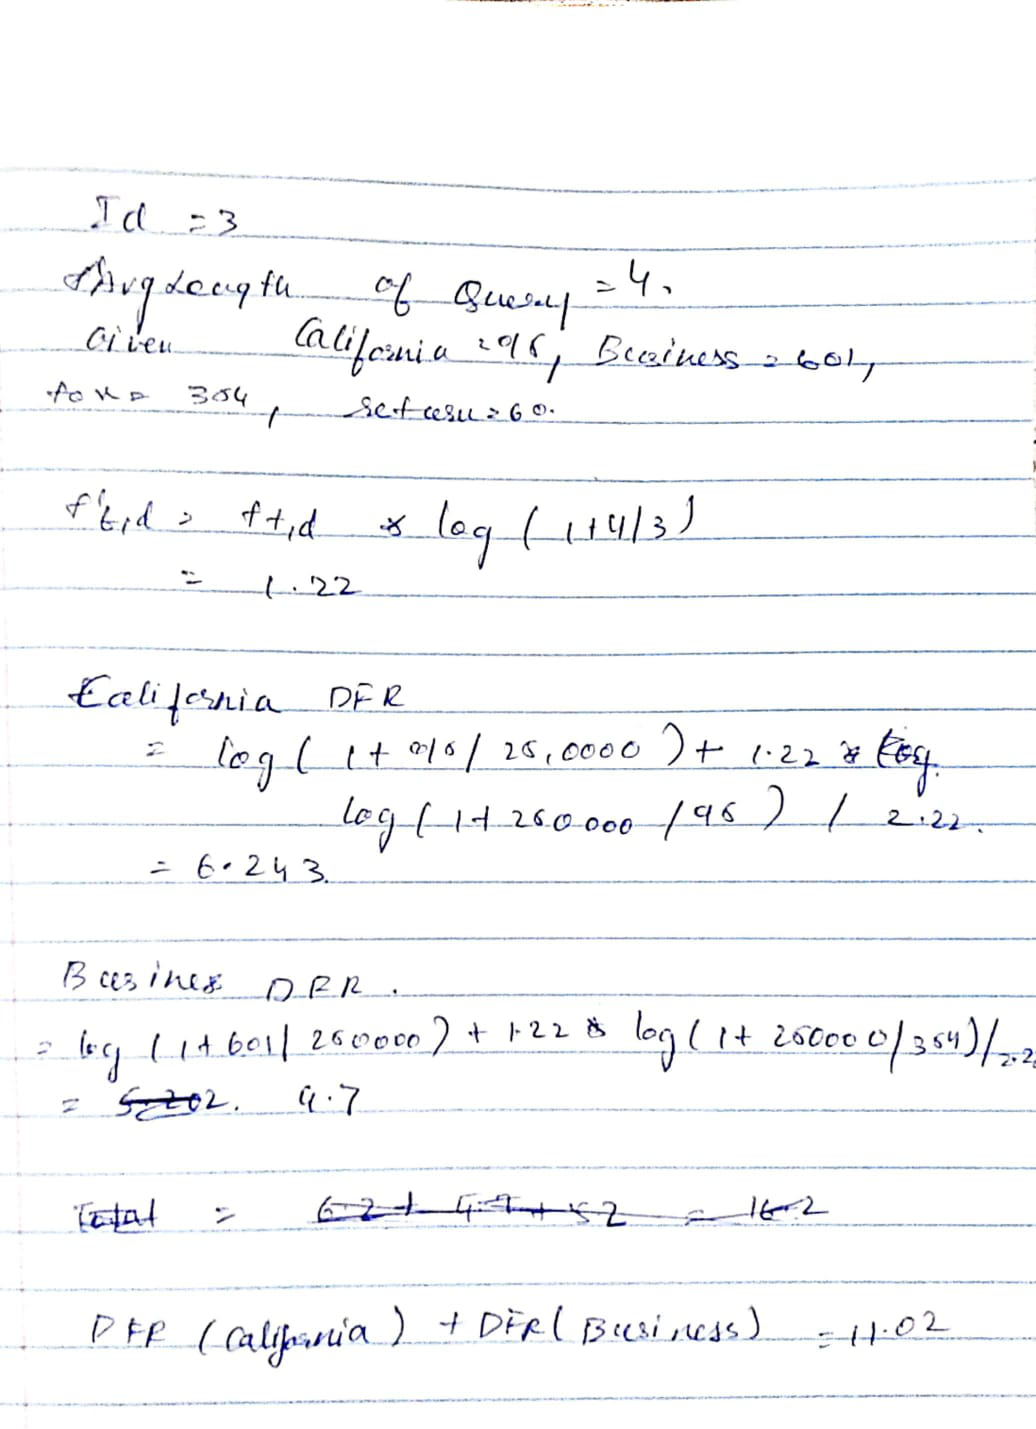 Id = 3
Avg Length of Query = 4.
Given California = 96, Business = 601,
tax = 354, return = 60.
f't,d = ft,d * log (1+4/3)
= 1.22
California DFR
= log ( 1 + 96 / 25,0000 ) + 1.22 *
log ( 1 + 250000 / 96 ) / 2.22.
= 6.243.
Business DFR.
= log (1 + 601/ 250000) + 1.22 * log (1 + 250000/354)/2.2
= 5.202. 4.7
Total = 6.2 + 4.7 + 5.2 = 16.2
DFR (California) + DFR( Business) = 11.02